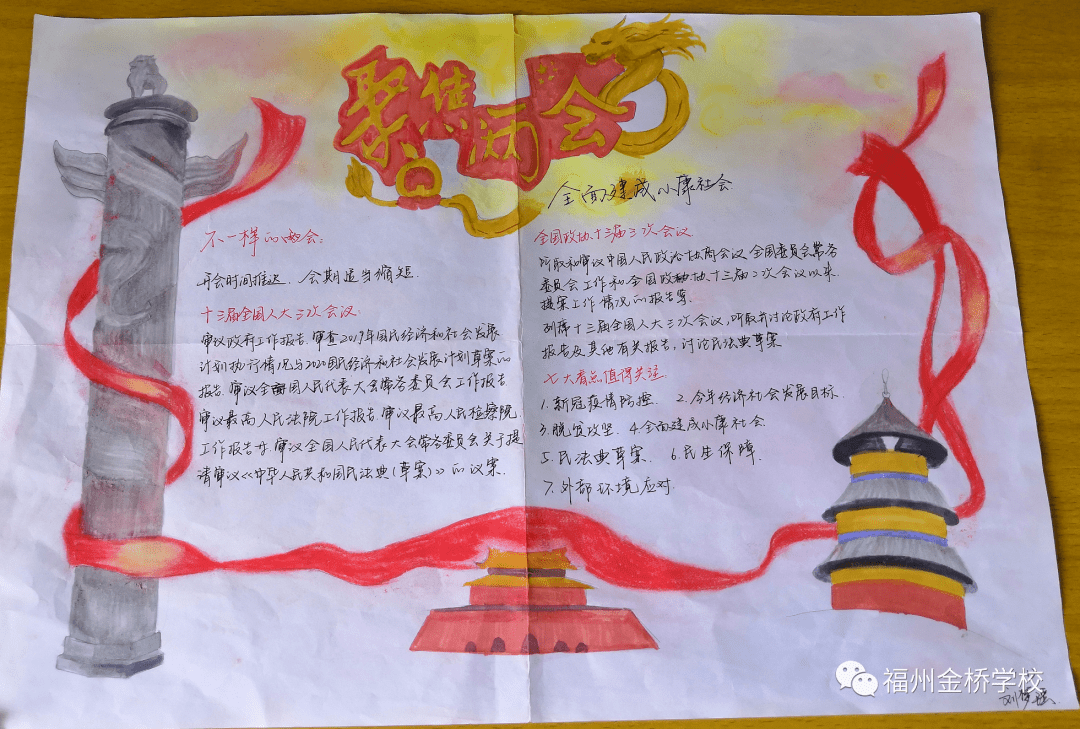 聚焦两会
全面建成小康社会
不一样的两会:
开会时间推迟. 会期适当缩短.
十三届全国人大三次会议:
审议政府工作报告.审查2019年国民经济和社会发展
计划执行情况与2020国民经济和社会发展计划草案的
报告.审议全国人民代表大会常务委员会工作报告
审议最高人民法院工作报告.审议最高人民检察院
工作报告.审议全国人民代表大会常务委员会关于提
请审议《中华人民共和国民法典(草案)》的议案.
全国政协十三届三次会议
听取和审议中国人民政治协商会议全国委员会常务
委员会工作和全国政协十三届二次会议以来
提案工作情况的报告等.
列席十三届全国人大三次会议,听取并讨论政府工作
报告及其他有关报告,讨论民法典草案
七大看点值得关注
1.新冠疫情防控. 2.今年经济社会发展目标.
3.脱贫攻坚. 4.全面建成小康社会
5.民法典草案. 6.民生保障.
7.外部环境应对
福州金桥学校